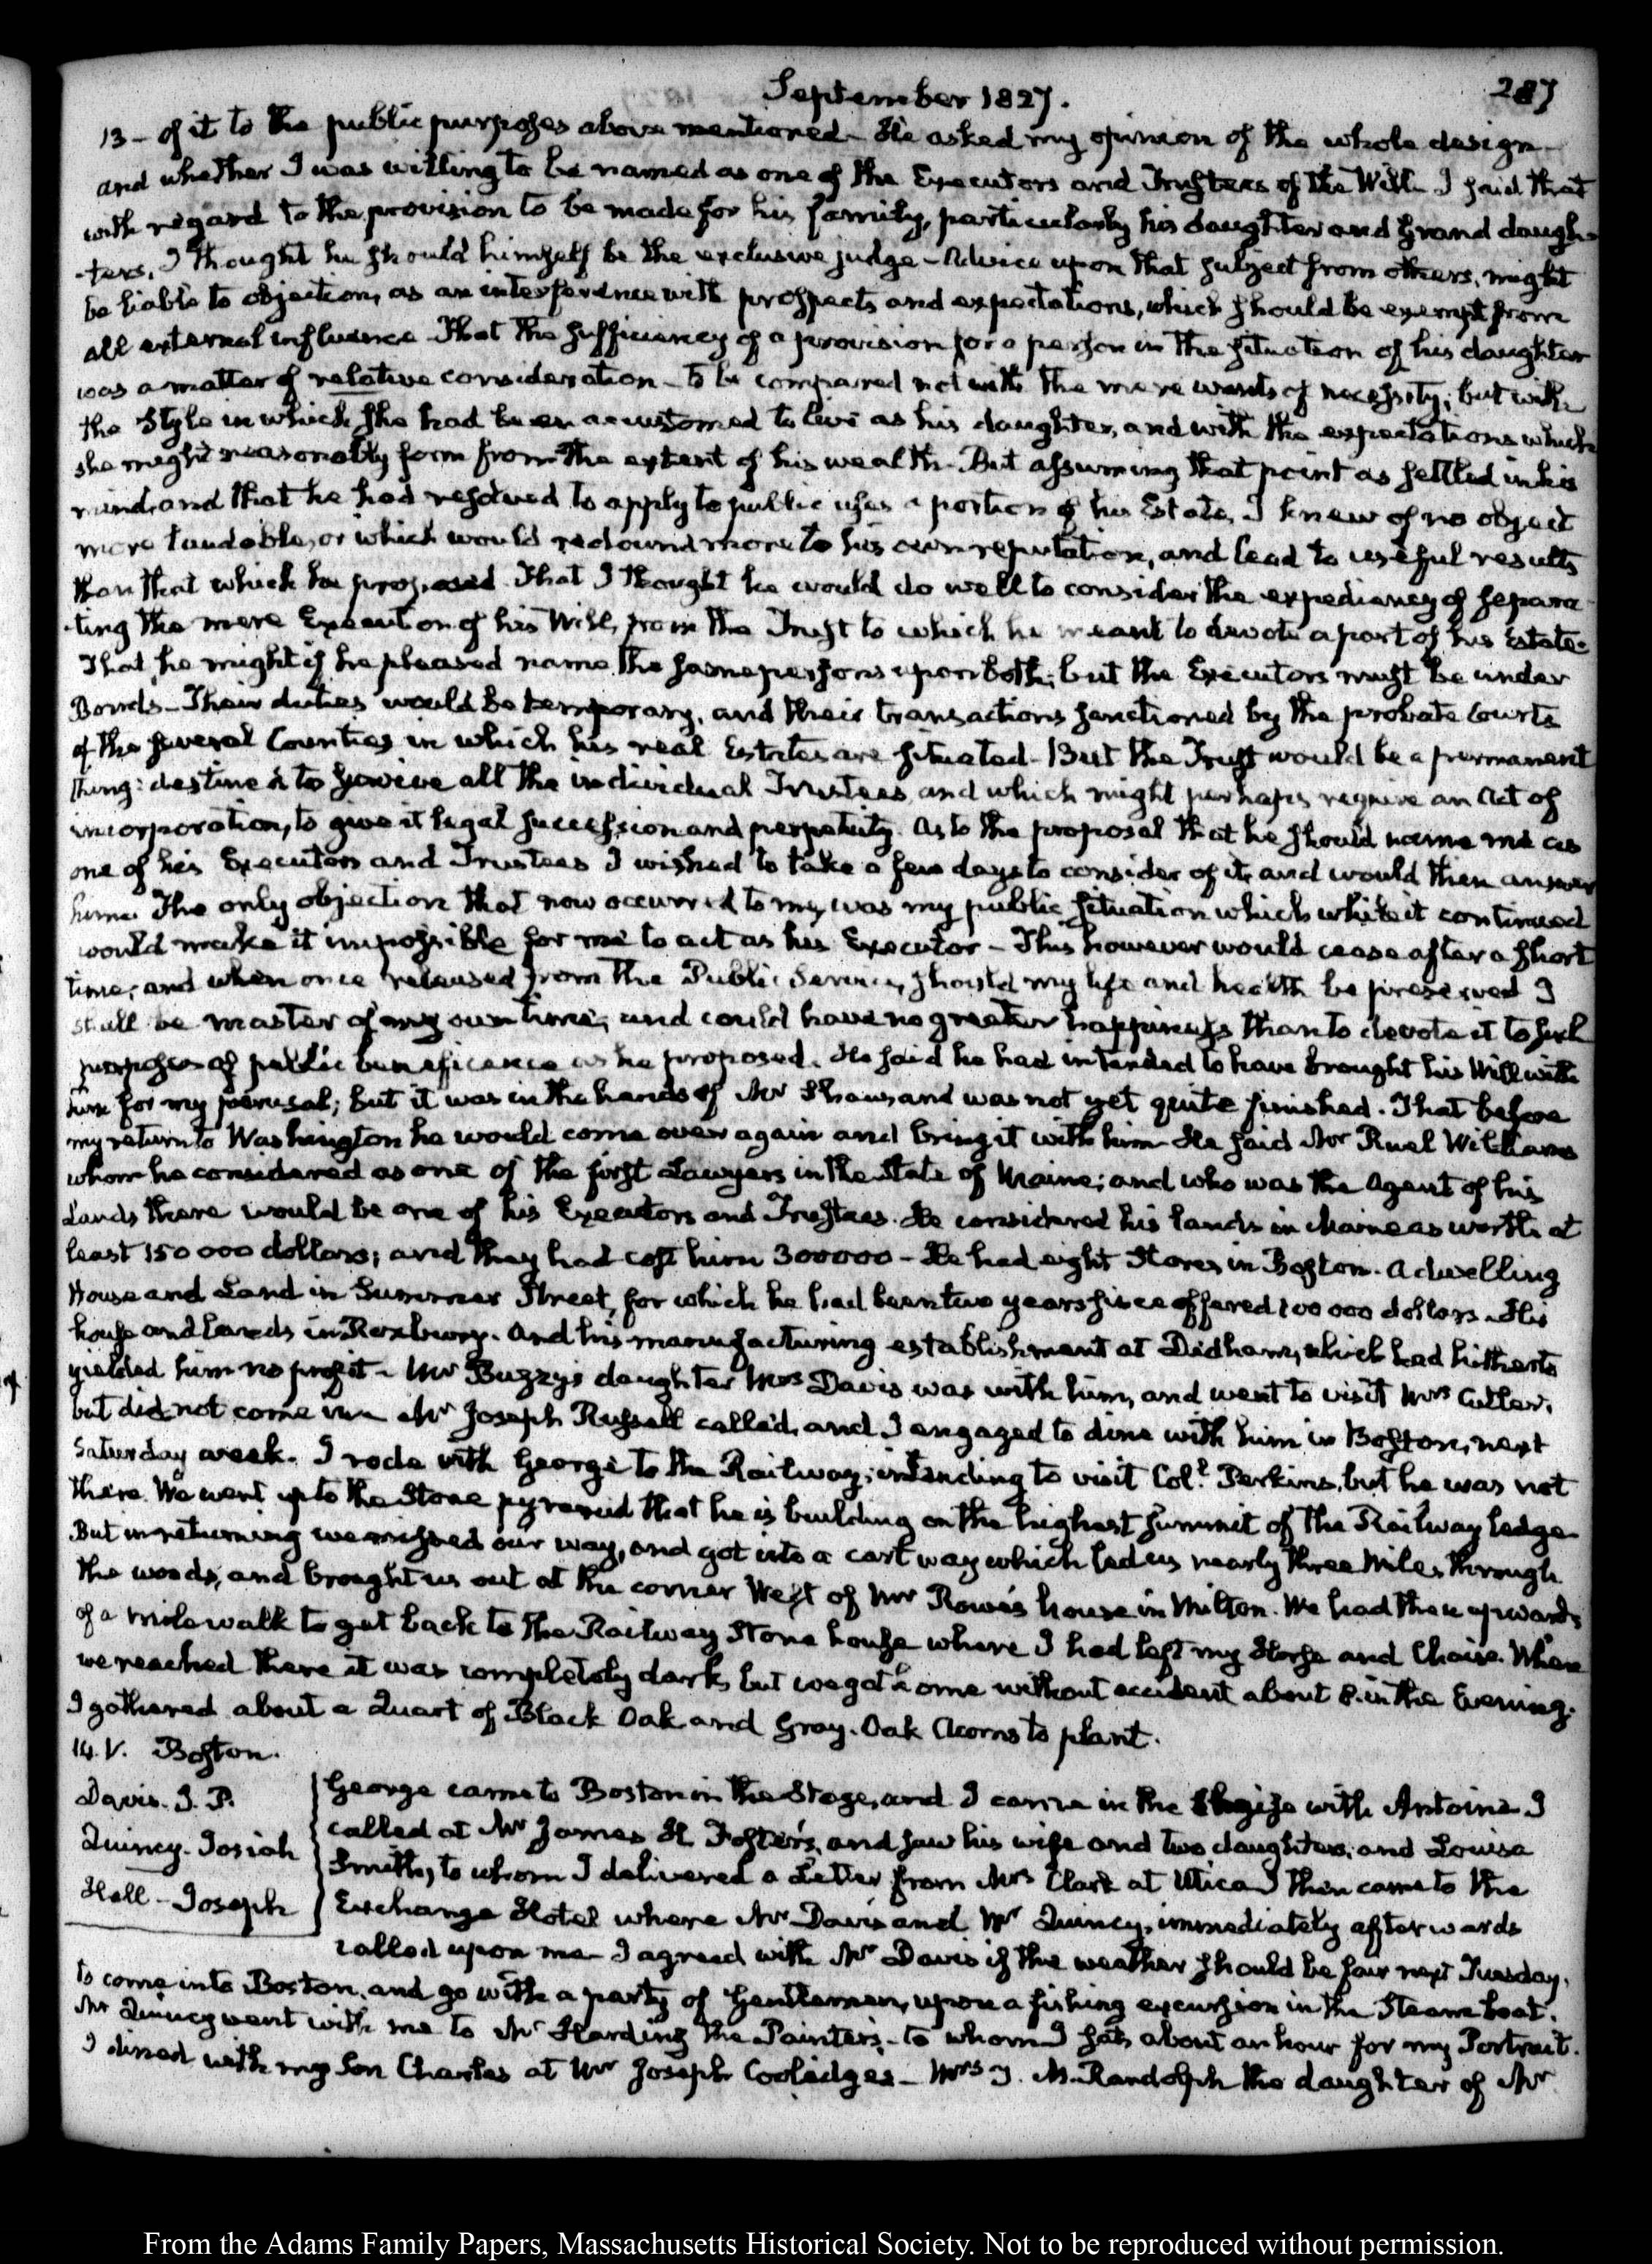 September 1827.
287
13 - of it to the public purposes above mentioned - He asked my opinion of the whole design -
and whether I was willing to be named as one of the Executors and Trustees of the Will. I said that
with regard to the provision to be made for his family, particularly his daughter and Grand daugh-
-ters, I thought he should himself be the exclusive judge - Advice upon that subject from others, might
be liable to objection, as an interference with prospects and expectations, which should be exempt from
all external influence. That the sufficiency of a provision for a person in the situation of his daughter
was a matter of relative consideration - to be compared not with the mere wants of necessity; but with
the Style in which she had been accustomed to live as his daughter, and with the expectations which
she might reasonably form from the extent of his wealth. But assuming that point as settled in his
mind, and that he had resolved to apply to public uses a portion of his Estate, I knew of no object
more laudable, or which would redound more to his own reputation, and lead to useful results
than that which he proposed. That I thought he would do well to consider the expediency of separa-
-ting the mere Execution of his Will, from the Trust to which he meant to devote a part of his Estate.
That he might if he pleased name the same persons upon both; but the Executors must be under
Bonds - Their duties would be temporary, and their transactions sanctioned by the probate Courts
of the several Counties in which his real Estates are situated. But the Trust would be a permanent
thing: destined to survive all the individual Trustees, and which might perhaps require an Act of
incorporation, to give it legal succession and perpetuity. As to the proposal that he should name me as
one of his Executors and Trustees I wished to take a few days to consider of it, and would then answer
him. The only objection that now occurred to me, was my public situation which while it continued
would make it impossible for me to act as his Executor - This however would cease after a short
time; and when once released from the Public Service, should my life and health be preserved I
shall be master of my own time, and could have no greater happiness than to devote it to such
purposes of public beneficence as he proposed. He said he had intended to have brought his Will with
him for my perusal; but it was in the hands of Mr Shaw, and was not yet quite finished. That before
my return to Washington he would come over again and bring it with him. He said Mr Ruel Williams
whom he considered as one of the first Lawyers in the State of Maine; and who was the Agent of his
Lands there would be one of his Executors and Trustees. He considered his lands in Maine as worth at
least 150 000 dollars; and they had cost him 300000 - He had eight Stores in Boston. A dwelling
House and Land in Summer Street, for which he had been two years since offered 100 000 dollars. His
house and lands in Roxbury. And his manufacturing establishment at Didham, which had hitherto
yielded him no profit - Mr Bussey's daughter Mrs Davis was with him, and went to visit Mrs Cutler,
but did not come in. Mr Joseph Russell called, and I engaged to dine with him in Boston, next
Saturday week. I rode with George to the Railway; intending to visit Coll. Perkins, but he was not
there. We went up to the Stone pyramid that he is building on the highest summit of the Railway ledge
But in returning we missed our way, and got into a cart way which led us nearly three Miles through
the woods, and brought us out at the corner West of Mr Rowe's house in Milton. We had then upwards
of a mile walk to get back to the Railway Stone house where I had left my Horse and Chaise. When
we reached there it was completely dark, but we got home without accident about 8. in the Evening.
I gathered about a Quart of Black Oak and Gray-Oak Acorns to plant.
14. V. Boston.
Davis. I. P.
Quincy. Josiah
Hall - Joseph
George came to Boston in the Stage, and I came in the Chaise with Antoine. I
called at Mr James H Foster's, and saw his wife and two daughters; and Louisa
Smith, to whom I delivered a Letter from Mrs Clark at Utica. I then came to the
Exchange Hotel where Mr Davis and Mr Quincy, immediately afterwards
called upon me. I agreed with Mr Davis if the weather should be fair next Tuesday,
to come into Boston, and go with a party of Gentlemen, upon a fishing excursion in the Steam boat.
Mr Quincy went with me to Mr Harding the Painter's - to whom I sat, about an hour for my Portrait.
I dined with my Son Charles at Mr Joseph Coolidge's - Mrs T. M. Randolph the daughter of Mr
From the Adams Family Papers, Massachusetts Historical Society. Not to be reproduced without permission.